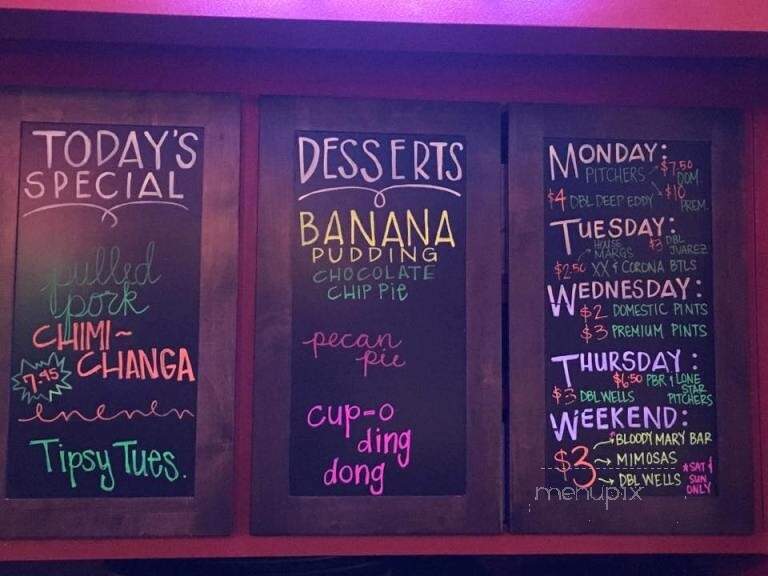 TODAY'S
SPECIAL
pulled
pork
CHIMI~
CHANGA
7.95
Tipsy Tues.
DESSERTS
BANANA
PUDDING
CHOCOLATE
CHIP PIE
pecan
pie
cup-o
ding
dong
MONDAY:
PITCHERS $7.50 DOM.
$10 PREM.
$4 DBL DEEP EDDY
TUESDAY:
HOUSE MARGS $3 DBL JUAREZ
$2.50 XX & CORONA BTLS
WEDNESDAY:
$2 DOMESTIC PINTS
$3 PREMIUM PINTS
THURSDAY:
$6.50 PBR & LONE STAR PITCHERS
$3 DBL WELLS
WEEKEND:
$3 BLOODY MARY BAR
MIMOSAS
DBL WELLS
*SAT &
SUN
ONLY
menupix